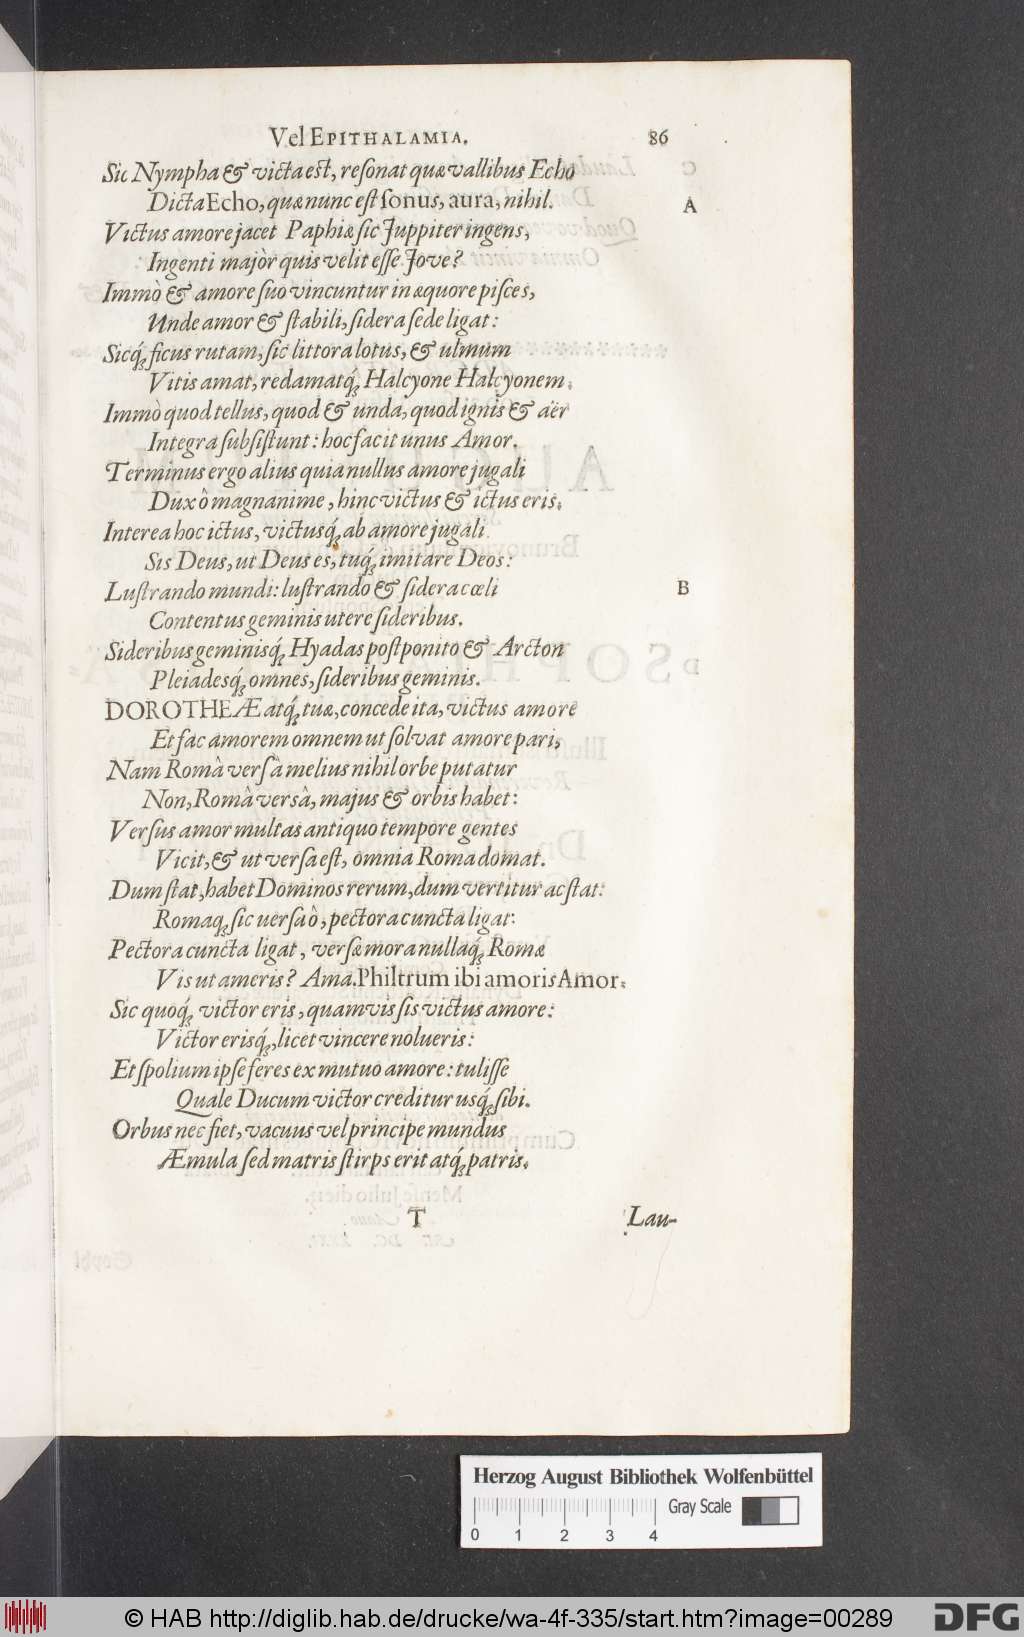 Vel EPITHALAMIA. 86
Sic Nympha & victa est, resonat quæ vallibus Echo
Dicta Echo, quæ nunc est sonus, aura, nihil.
A
Victus amore jacet Paphiæ sic Juppiter ingens,
Ingenti majòr quis velit esse Jove?
Immò & amore suo vincuntur in æquore pisces,
Unde amor & stabili, sidera sede ligat:
Sicq́; ficus rutam, sic littora lotus, & ulmum
Vitis amat, redamatq́; Halcyone Halcyonem.
Immò quod tellus, quod & unda, quod ignis & aër
Integra subsistunt: hoc facit unus Amor.
Terminus ergo alius quia nullus amore jugali
Dux ô magnanime, hinc victus & ictus eris.
Interea hoc ictus, victusq́; ab amore jugali
Sis Deus, ut Deus es, tuq́; imitare Deos:
Lustrando mundi: lustrando & sidera cœli
B
Contentus geminis utere sideribus.
Sideribus geminisq́; Hyadas postponito & Arcton
Pleiadesq́; omnes, sideribus geminis.
DOROTHEÆ atq́; tuæ, concede ita, victus amore
Et fac amorem omnem ut solvat amore pari,
Nam Româ versâ melius nihil orbe putatur
Non, Româ versâ, majus & orbis habet:
Versus amor multas antiquo tempore gentes
Vicit, & ut versa est, omnia Roma domat.
Dum stat, habet Dominos rerum, dum vertitur ac stat:
Romaq; sic uersa ô, pectora cuncta ligat:
Pectora cuncta ligat, versæ mora nullaq́; Romæ
Vis ut ameris? Ama. Philtrum ibi amoris Amor.
Sic quoq́; victor eris, quamvis sis victus amore:
Victor erisq́;, licet vincere nolueris:
Et spolium ipse feres ex mutuo amore: tulisse
Quale Ducum victor creditur usq́; sibi.
Orbus nec fiet, vacuus vel principe mundus
Æmula sed matris stirps erit atq́; patris.
T Lau-
Herzog August Bibliothek Wolfenbüttel
Gray Scale
0 1 2 3 4
© HAB http://diglib.hab.de/drucke/wa-4f-335/start.htm?image=00289
DFG